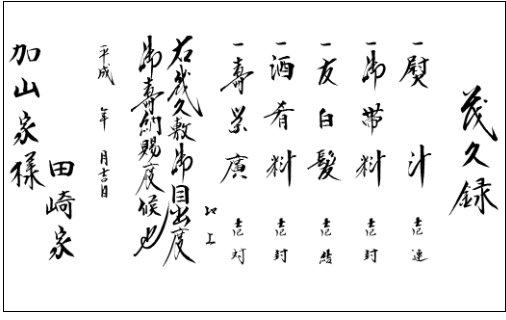 茂久録
一熨斗 壱連
一御帯料 壱封
一友白髪 壱結
一酒肴料 壱封
一壽栄廣 壱対
以上
右幾久敷御目出度
御壽納賜度候也
平成 年 月吉日
田崎家
加山家様